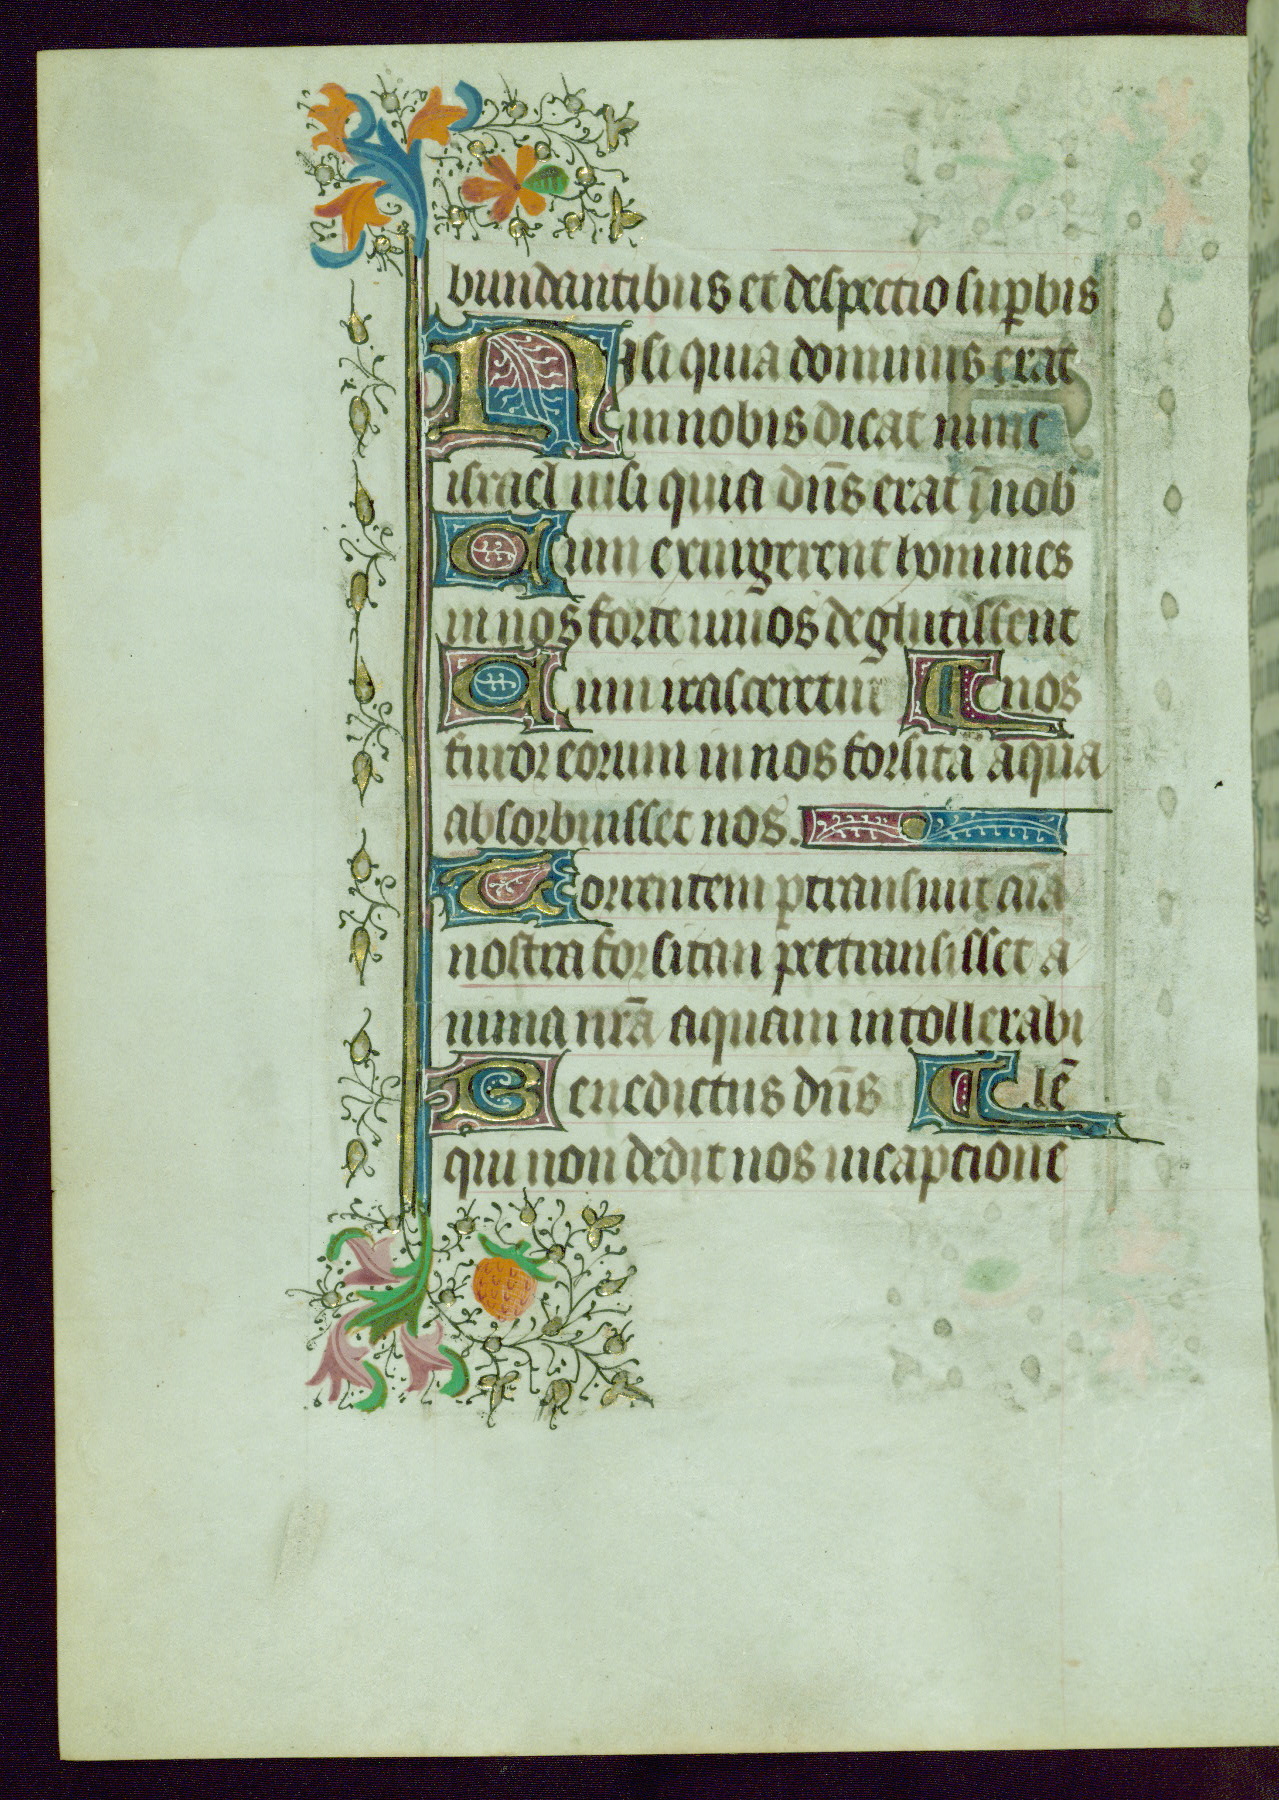 bundantibus et despectio sup̱bis
Nisi quia dominus erat
in nobis dicat nunc
israel nisi quia dn̄s erat ī nob
Cum exurgerent homines
in nos forte uiuos deglutissent
Cum irasceretur
furor eorum in nos forsitā aqua
absorbuisset nos.
Torrentem p̱transiuit aīa
nostra forsitan pertransisset a
nima nr̄a aquam intollerabi
Benedictus dn̄s lē
qui non dedit nos in captione